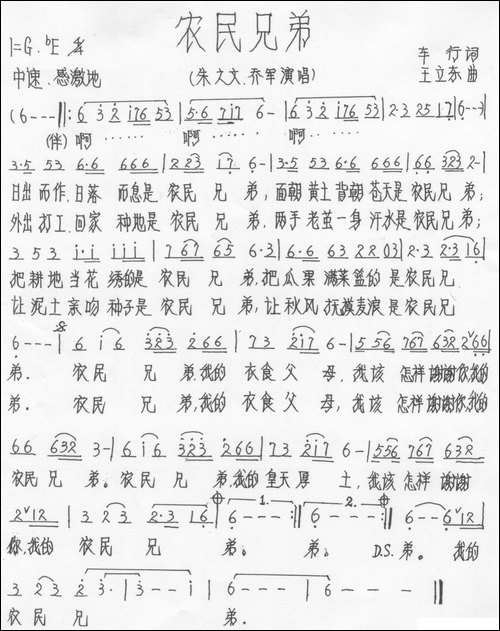 农民兄弟
1=G.ᵇE 2/4
车行词
中速.感激地
(朱大文.乔军演唱)
王立东曲
(6---‖:6 3 2 i76 53|5·6 7i7 6-|6 3 2 i76 53|2·3 25 17|6---)
(伴)啊…… 啊…… 啊……
3·5 53 6·6 666|223 i7 6-|3·5 53 6·6 666|66 323 2-|
日出而作.日落 而息是 农民 兄 弟,面朝黄土背朝苍天是农民兄 弟;
外出打工.回家 种地是 农民 兄 弟,两手老茧一身汗水是农民兄弟;
3 5 3 i·i iii|7 67 65 6·3|6·6 63 22 03|2·3 2·3 16|
把耕地当花 绣的是 农民 兄 弟,把瓜果 满菜篮的 是农民兄
让泥土亲吻 种子是 农民 兄 弟,让秋风 抚摸麦浪是农民兄
6---|6 i6 323 266|73 2i7 6-|5 56 767 632 2ᵛ66|
弟. 农民 兄 弟,我的 衣食父 母,我该 怎样谢谢你,我的
弟. 农民 兄 弟,我的 衣食父 母,我该 怎样谢谢你,我的
66 632 3-|6 i6 323 266|73 2i7 6-|556 767 632
农民兄 弟。农民 兄 弟,我的皇天厚 土,我该怎样 谢谢
2ᵛ12|3 23 2·3 16|6---:‖6---:‖6--6ᵛ12|
你,我的 农民 兄 弟。 弟。 D.S.弟。 我的
3 23 2 3·|3--i|i---|6---‖
农民 兄 弟.